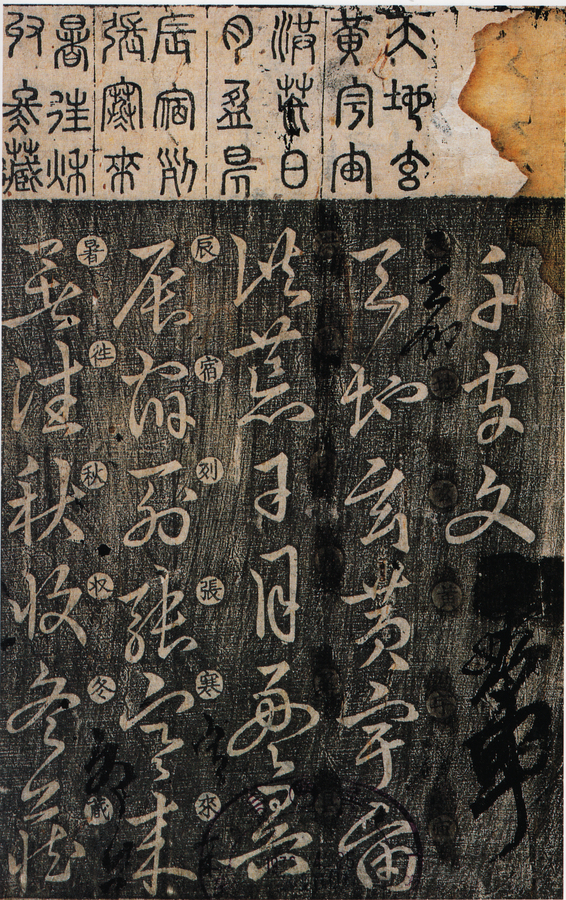 天地玄
黃宇宙
洪荒日
月盈昃
辰宿列
張寒來
暑往秋
收冬藏
千字文
天地玄黃宇宙
洪荒日月盈昃
辰宿列張寒來
辰宿列張寒來
暑徃秋収冬藏
暑往秋收冬藏